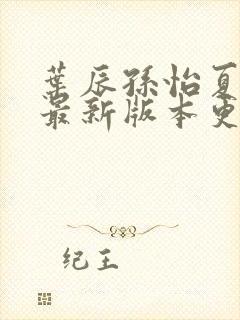 葉辰孫怡夏
最新版本更
纪王